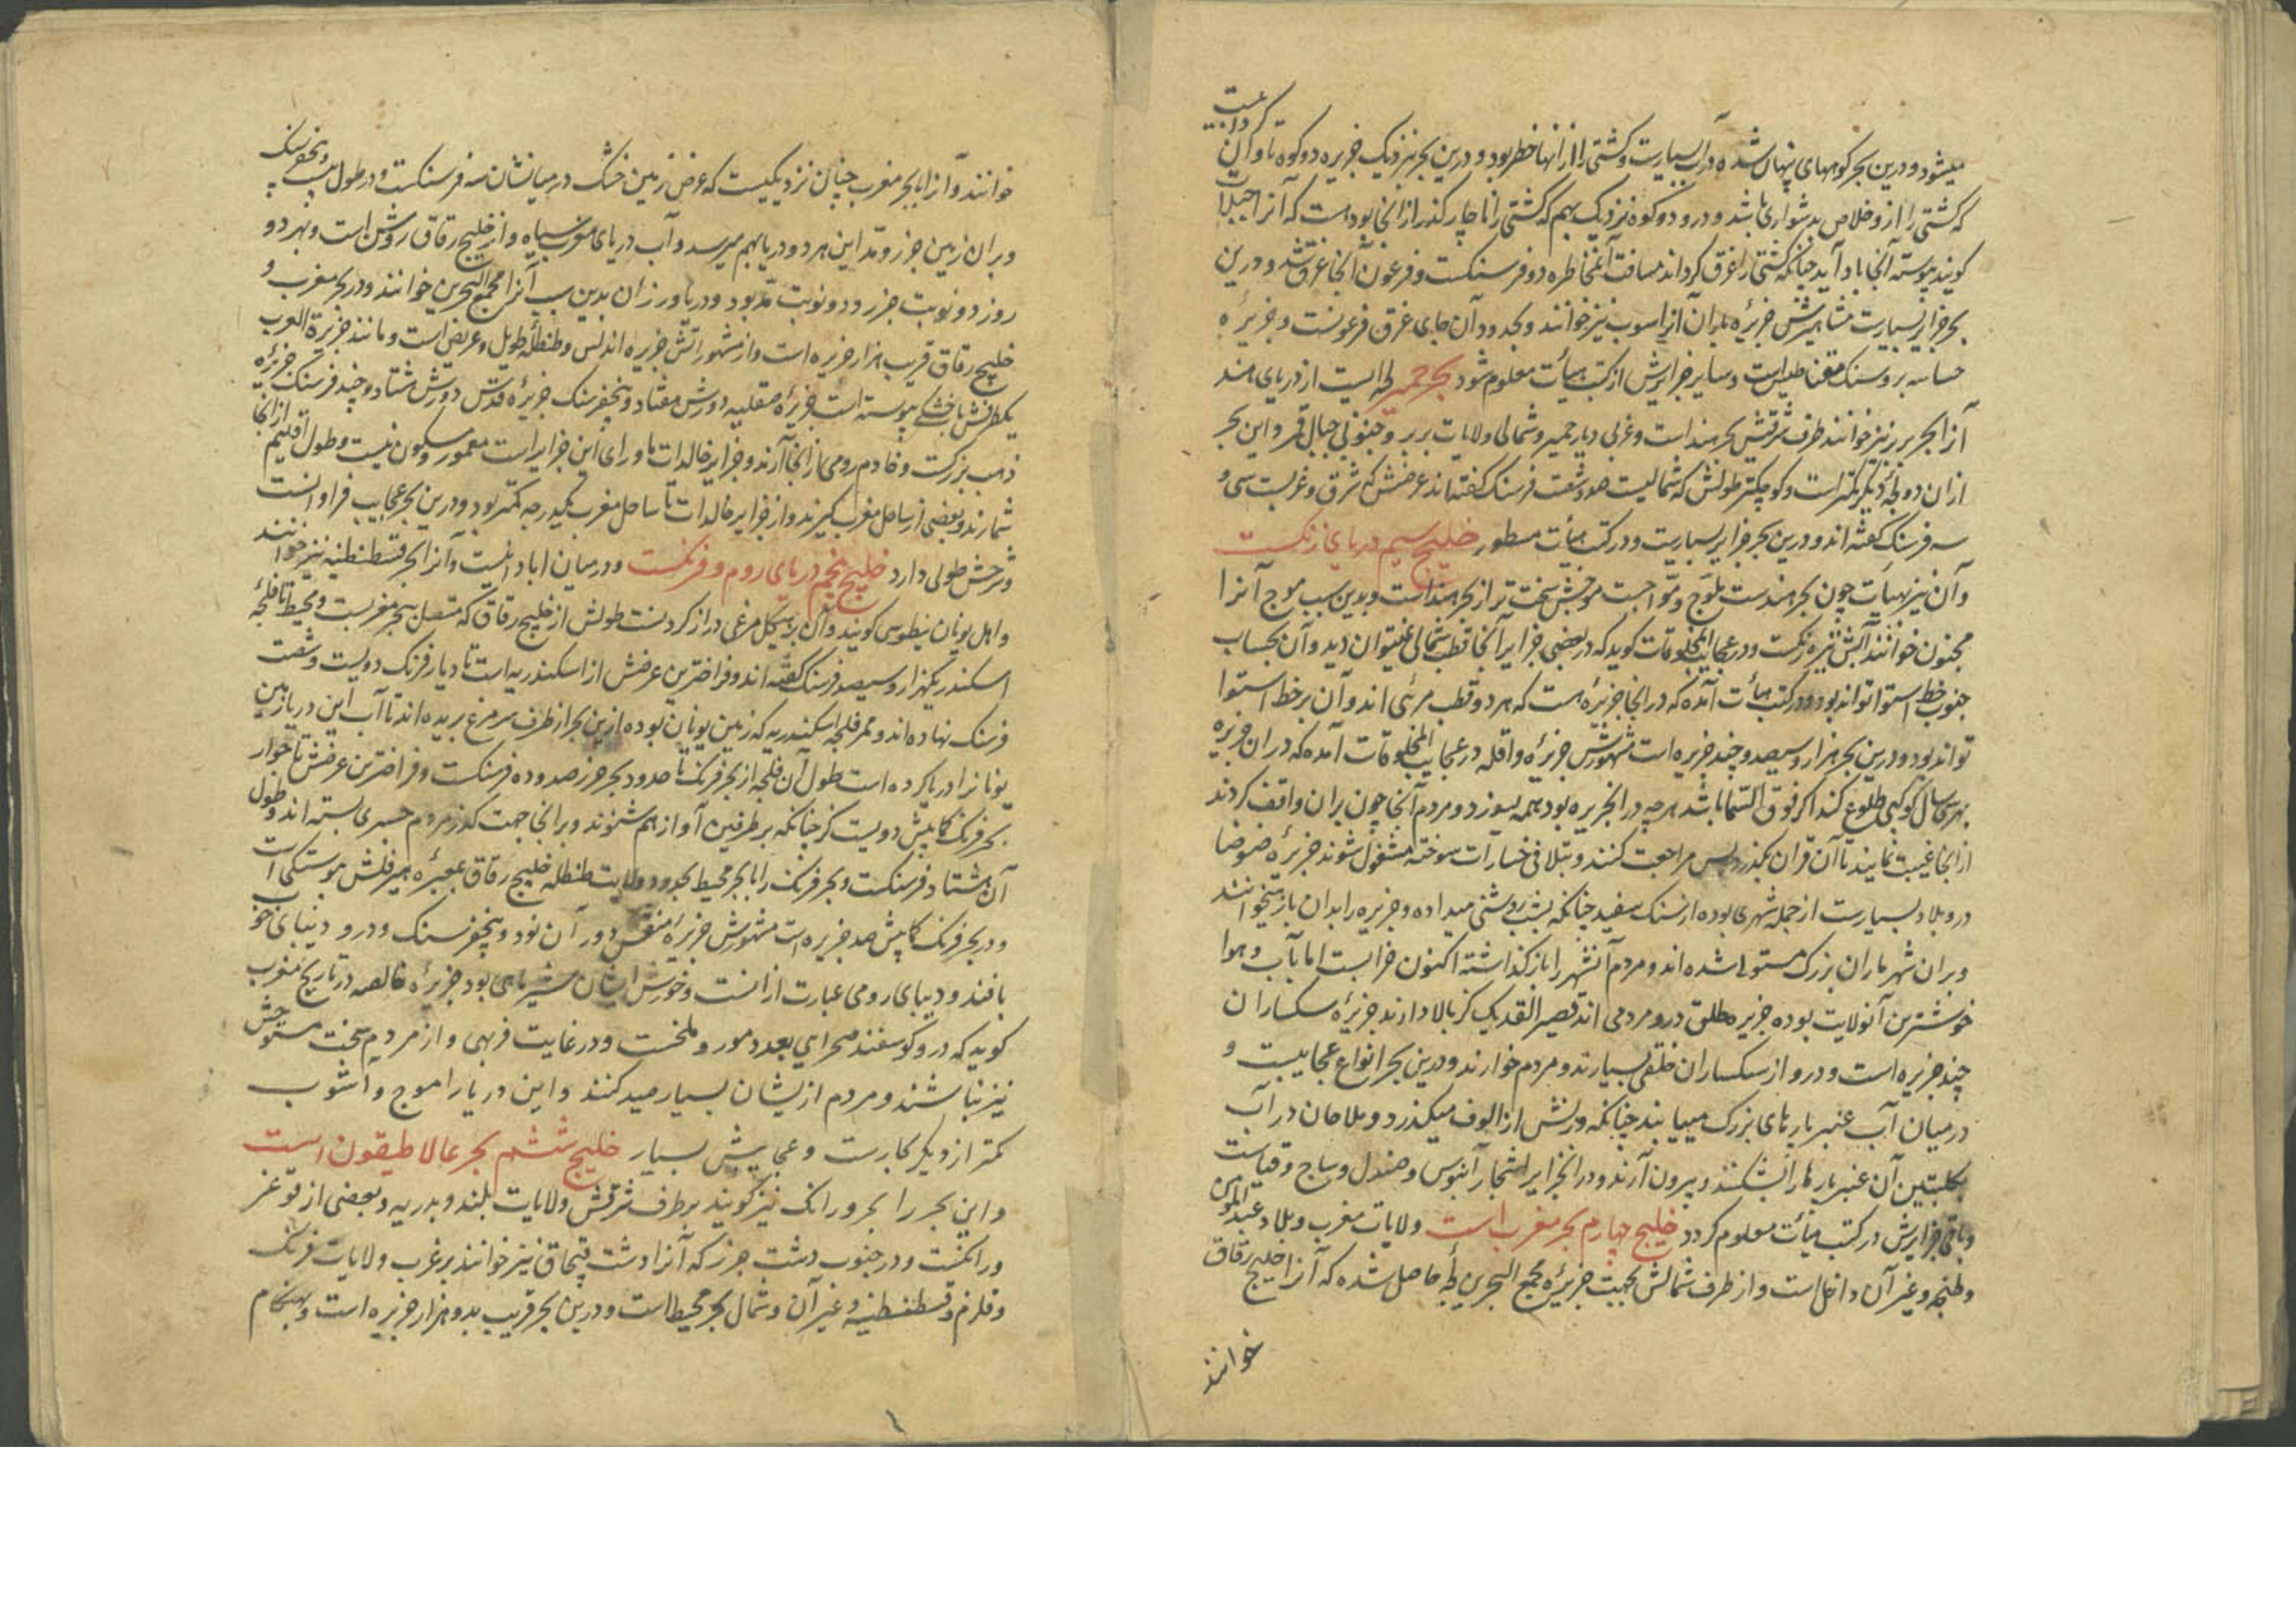 میشود و درین بحر کوههای پنهان شده در آب بسیارست و کشتی را از آنها خطر بود و درین بحر نزدیک جزیره دو کوه تاوآن گردابیست
که کشتی را ازو خلاص بدشواری باشد و درو دو کوه نزدیک بهم که کشتی را ناچار گذر از آنجا بوده است که آنرا جبیلات
کویند پیوسته آنجا باد آید چنانکه کشتی را غرق گرداند مسافت آن مخاطره دو فرسنگست و فرعون آنجا غرق شد و درین
بحر جزایر بسیارست مشاهیرش جزیره باران آنرا سوب نیز خوانند و بحدود آن جای غرق فرعونست و جزیره
حساسه برو سنگ مقناطیس است و سایر جزایرش از کتب هیأت معلوم شود بحر حمیر لجه ایست از دریای هند
آنرا بحر بربر نیز خوانند طرف شرقیش بحر هند است و غربی دیار حمیر و شمالی ولایات بربر و جنوبی جبال قمر و این بحر
ازان دو لجه دیگر کمتر است و کوچکتر طولش که شمالیست صد و شصت فرسنگ گفته اند عرضش که شرق و غربست سی و
سه فرسنگ گفته اند و درین بحر جزایر بسیارست و در کتب هیأت مسطور خلیج سیم دریای زنگست
و آن نیز بهیأت چون بحر هندست بلوج و مواجست موجش سخت تر از بحر هند است و بدین سبب موج آنرا
مجنون خوانند آبش تیره رنگست و در عجایب المخلوقات کوید که در بعضی جزایر آنجا قطب شمالی نمیتوان دید و آن بحساب
جنوب خط استوا تواند بود و در کتب هیأت آمده که در آنجا جزیره هست که هر دو قطب مرئی اند و آن بر خط استوا
تواند بود و درین بحر هزار و سیصد و چند جزیره است مشهورش جزیره واقله در عجایب المخلوقات آمده که در ان جزیره
بهر سی سال کوکبی طلوع کند اکر فوق السما باشد هر چه در آن جزیره بود همه بسوزد و مردم آنجا چون بران واقف کردند
از انجا غیبت نمایند تا آن قران بگذرد پس مراجعت کنند و بتلافی خسارات سوخته مشغول شوند جزیره ضوضا
درو بلاد بسیارست از جمله شهری بوده از سنگ سفید چنانکه بشب روشنی میداده و جزیره را بدان باز میخوانند
و بران شهر ماران بزرگ مستولی شده اند و مردم آن شهر را باز گذاشته اکنون خرابست اما بآب و هوا
خوشترین آن ولایت بوده جزیره مطلق درو مردمی اند قصیر القد یک گز بالا دارند جزیره سکساران
چند جزیره است و درو از سکساران خلقی بسیارند و مردم خوارند و درین بحر انواع عجایبست و
در میان آب عنبر بارهای بزرگ مییابند چنانکه وزنش از الوف میگذرد و ملاحان در آب
بکلبتین آن عنبر بارها را بشکنند و بیرون آرند و در آن جزایر اشجار آبنوس و صندل و ساج و قناست
و باقی جزایرش در کتب هیأت معلوم کردد خلیج چهارم بحر مغرب است ولایات مغرب و بلاد عبد المومن
و طنجه و غیر آن داخل است و از طرف شمالش بجهت جزیره مجمع البحرین لجه حاصل شده که آنرا خلیج رقاق
خوانند
خوانند و آنرا با بحر مغرب چنان نزدیکیست که عرض زمین خشک در میانشان سه فرسنگست و در طول بیست و پنج فرسنگ
و بران زمین جزر و مد این هر دو دریا بهم میرسد و آب دریای مغرب سیاه و از خلیج رقاق روشن است و بهر دو
روز دو نوبت جزر و دو نوبت مد بود و دریا ورزان بدین سبب آنرا مجمع البحرین خوانند و در بحر مغرب و
خلیج رقاق قریب هزار جزیره است و از مشهوراتش جزیره اندلس و طنطله طویل و عریض است و مانند جزیرة العرب
یکطرفش با خشکی پیوسته است جزیره صقلیه دورش هفتاد و پنج فرسنگ جزیره قدس دورش هشتاد و چند فرسنگ جزیره
ذهب بزرگست و خادم رومی از انجا آرند و جزایر خالدات ماورای این جزایر است معمور و مسکون نیست و طول اقلیم از انجا
شمارند و بعضی از ساحل مغرب گیرند و از جزایر خالدات تا ساحل مغرب بکدرجه کمتر بود و درین بحر عجایب فراوانست
و شرحش طولی دارد خلیج پنجم دریای روم و فرنگست و در میان ابادانیست و آنرا بحر قسطنطنیه نیز خوانند
و اهل یونان نیطوس کویند و آن بر شکل مرغی دراز کردنست طولش از خلیج رقاق که متصل ببحر مغربست و محیط تا فلجه
اسکندر یکهزار و سیصد فرسنگ گفته اند و فراختریین عرضش از اسکندریه است تا دیار فرنگ دویست و شصت
فرسنگ نهاده اند و ممر فلجه اسکندریه که زمین یونان بوده ازین بحر از طرف سر مرغ بریده اند تا آب این دریا زمین
یونانرا دریا کرده است طول آن فلجه از بحر فرنگ تا حدود بحر خزر صد و ده فرسنگست و فراختریین عرضش تا جوار
بحر فرنگ کمابیش دویست گز چنانکه بر طرفین آواز هم شنوند و برانجا جهت گذر مردم جسری بسته اند و طول
آن هشتاد فرسنگست و بحر فرنگ را با بحر محیط بحدود ولایت طنطله خلیج رقاق بمعبره هیرقلش پیوستگی است
و در بحر فرنگ کمابیش صد جزیره است مشهورش جزیره منقس دور آن نود و پنج فرسنگ و درو دیبای خوب
بافند و دیبای رومی عبارت ازانست و خورش ایشان بیشتر ماهی بود جزیره خالصه در تاریخ مغرب
کوید که درو گوسفند صحرایی بعدد مور و ملخست و در غایت فربهی و از مردم سخت مستوحش
نیز نباشند و مردم ازیشان بسیار صید کنند و این دریا را موج و آشوب
کمتر از دیگر بحارست و عجایبش بسیار خلیج ششم بحر عالاطیقون است
و این بحر را بحر ورانک نیز کویند بر طرف شرقش ولایات بلند و بدریه و بعضی از قوغر
ورانکست و در جنوب دشت خزر که آنرا دشت قبچاق نیز خوانند بر غرب ولایات فرنگ
و قلزم و قسطنطنیه و غیر آن و شمال بحر محیط است و درین بحر قریب بدو هزار جزیره است و بهنگام